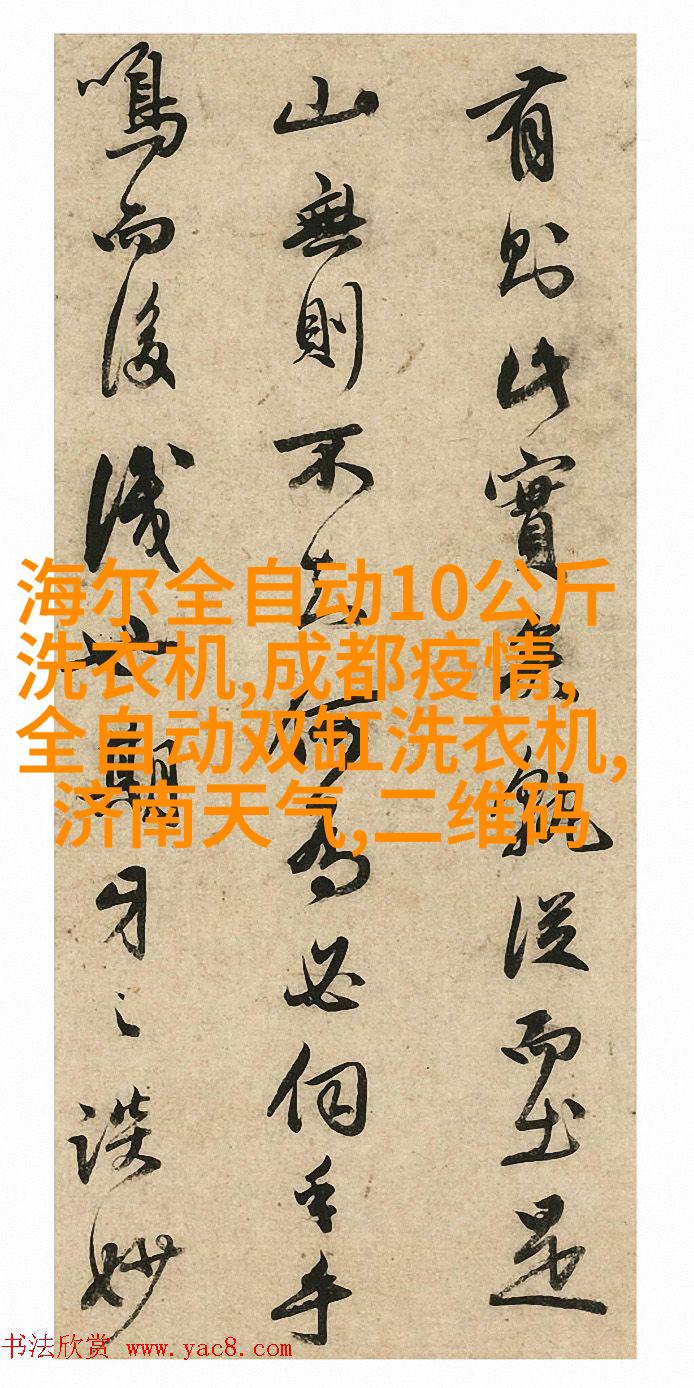 有則此實矣孰從而出是
山無則不何為必伺乎
鳴而後識期牙之談妙
海尔全自动10公斤
洗衣机,成都疫情,
全自动双缸洗衣机,
济南天气,二维码
书法欣赏 www.yac8.com